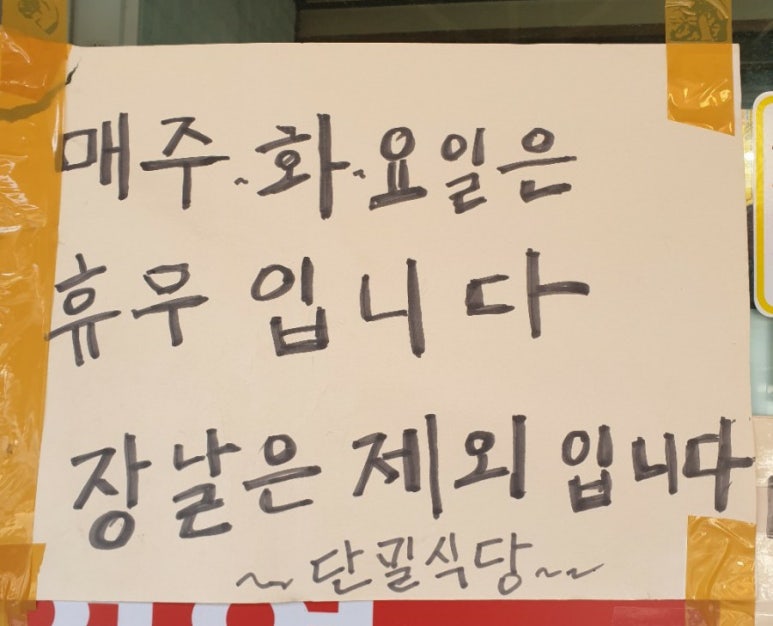 매주 화요일은
휴무 입니다
장날은 제외 입니다
~단골식당~